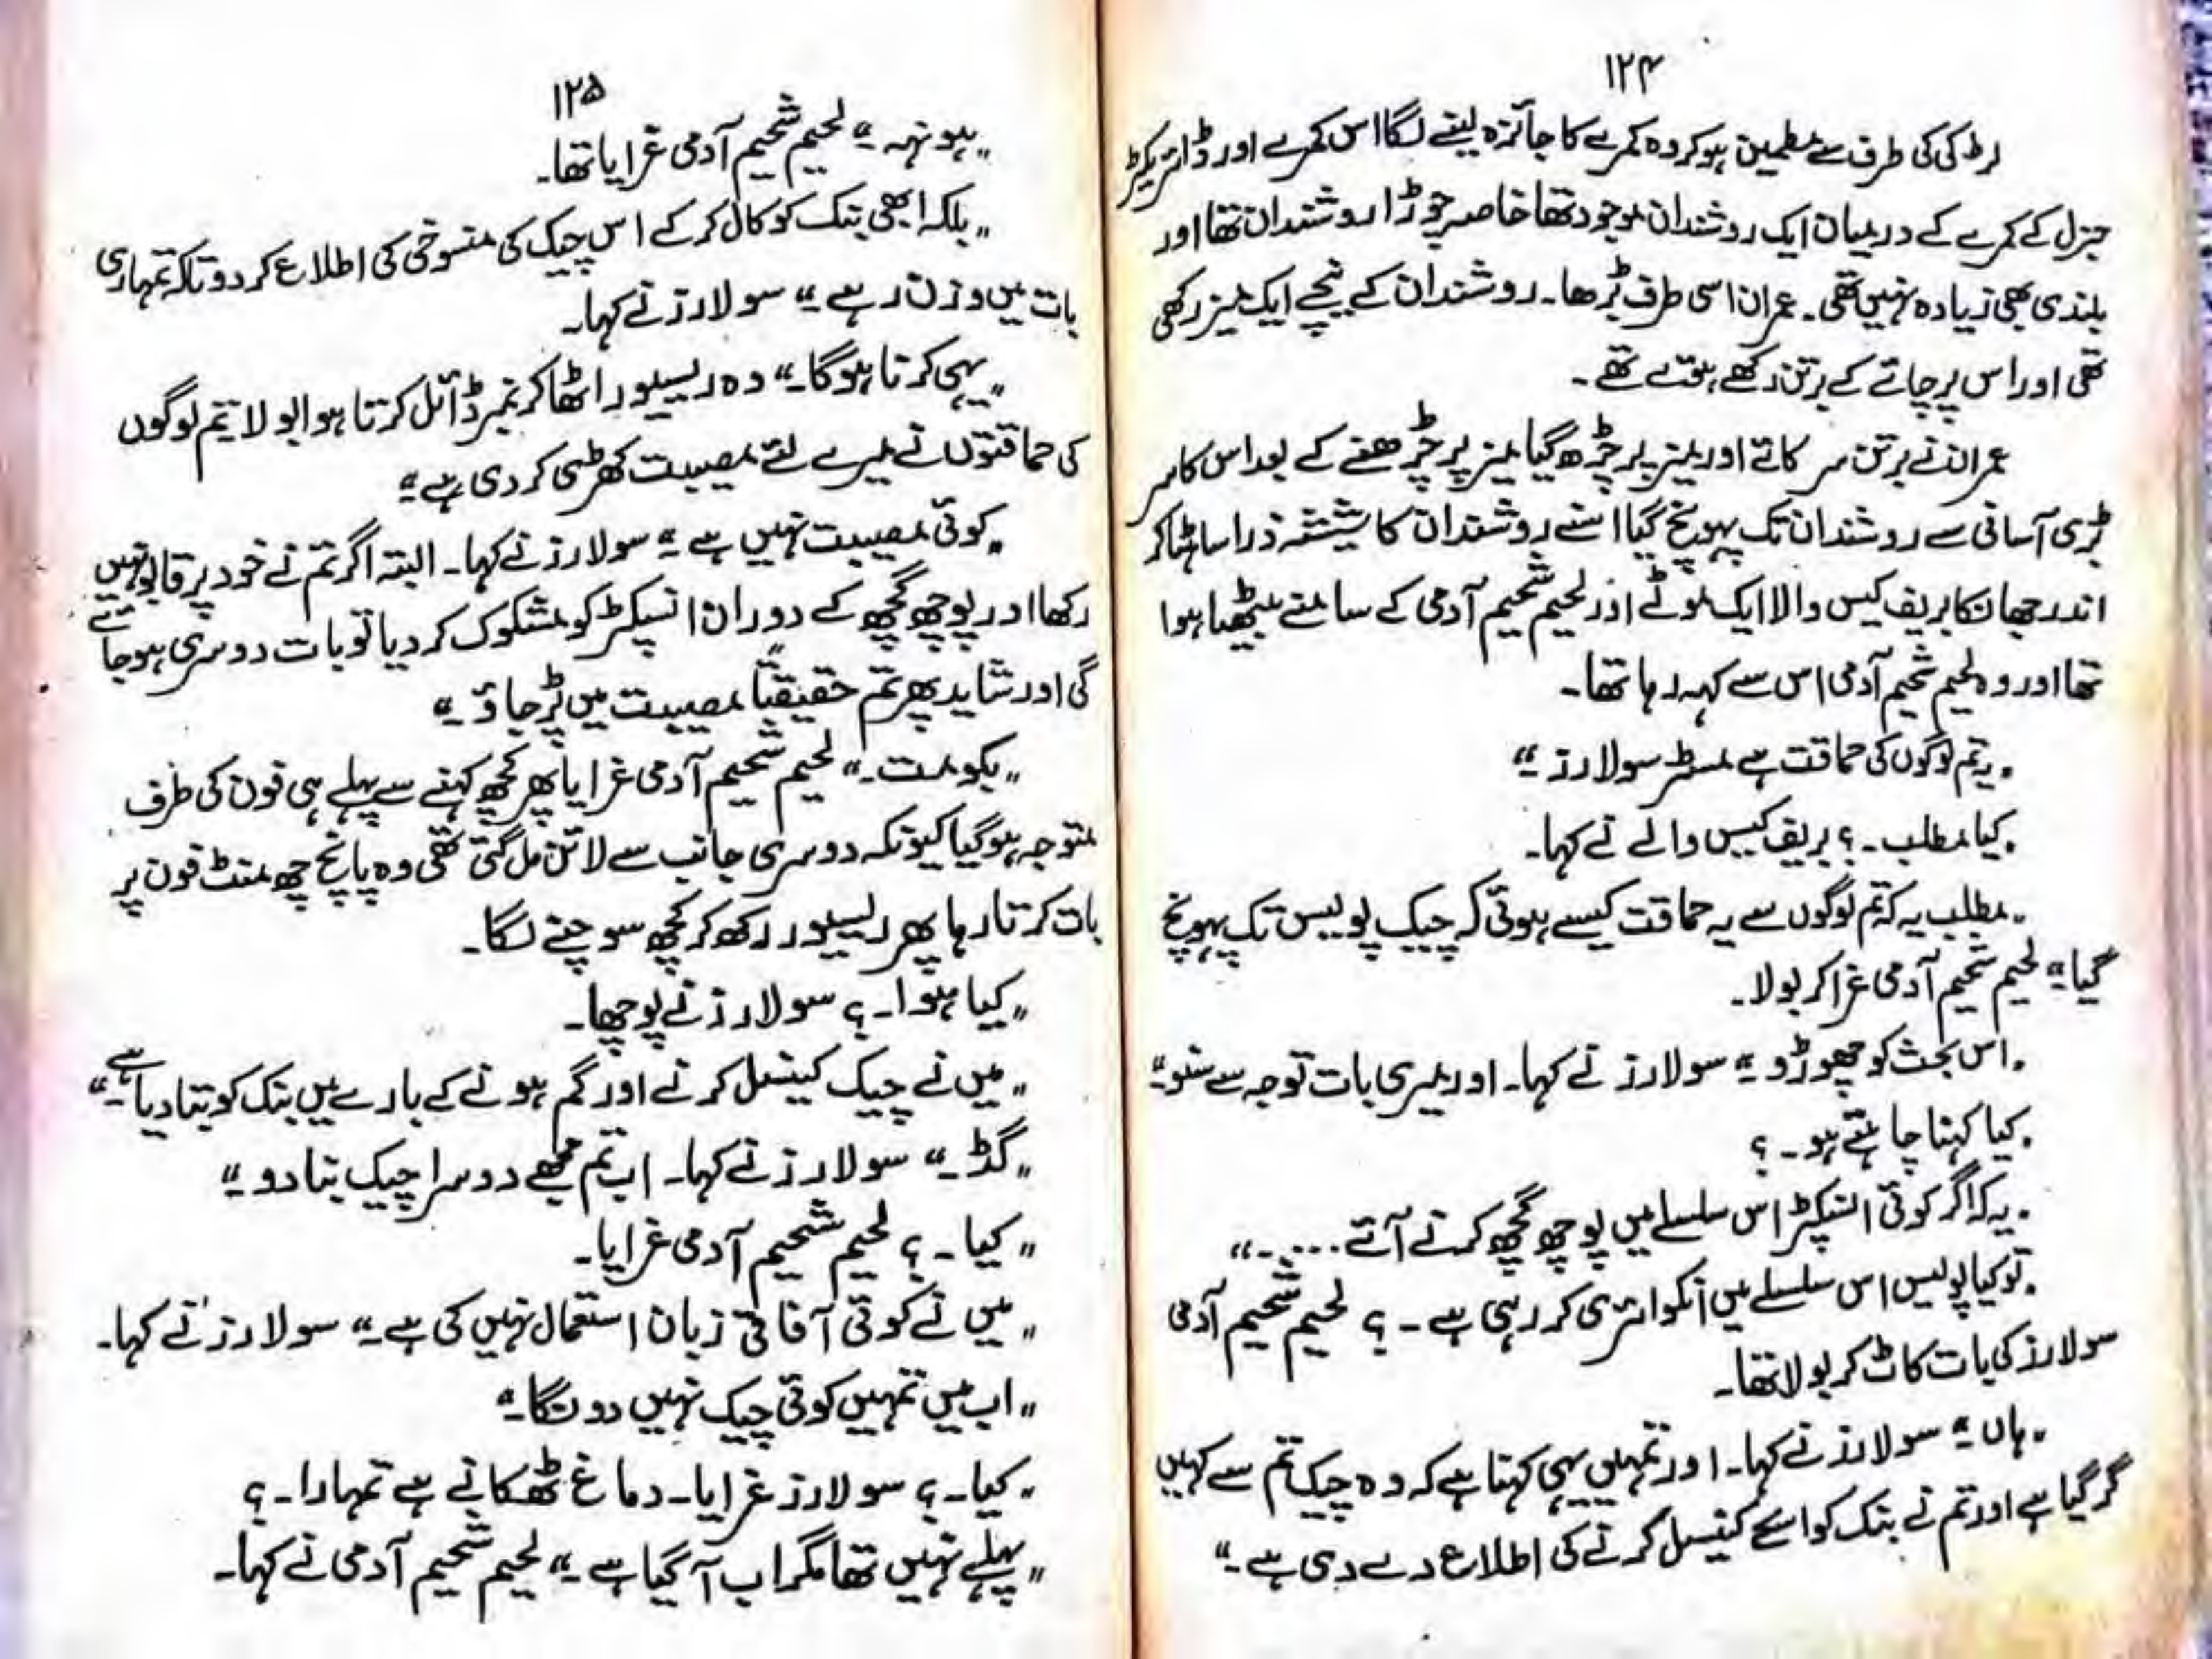 ۱۲۴
لڑکی کی طرف سے مطمئن ہو کر وہ کمرے کا جائزہ لینے لگا اس کمرے اور ڈائریکٹر
جنرل کے کمرے کے درمیان ایک روشندان موجود تھا خاصہ چوڑا روشندان تھا اور
بلندی بھی زیادہ نہیں تھی۔ عمران اسی طرف بڑھا۔ روشندان کے نیچے ایک میز رکھی
تھی اور اس پر چائے کے برتن رکھے ہوئے تھے۔
عمران نے برتن سرکائے اور میز پر چڑھ گیا میز پر چڑھنے کے بعد اس کا سر
بڑی آسانی سے روشندان تک پہونچ گیا اسنے روشندان کا شیشہ ذرا سا ہٹا کر
اندر جھانکا بریف کیس والا ایک موٹے اور لحیم شحیم آدمی کے سامنے بیٹھا ہوا
تھا اور وہ لحیم شحیم آدمی اس سے کہہ رہا تھا۔
"یہ تم لوگوں کی حماقت ہے مسٹر سولارز۔"
"کیا مطلب۔؟ بریف کیس والے نے کہا۔
"مطلب یہ کہ تم لوگوں سے یہ حماقت کیسے ہوئی کہ چیک پولیس تک پہونچ
گیا۔" لحیم شحیم آدمی غرا کر بولا۔
"اس بحث کو چھوڑو۔" سولارز نے کہا۔ اور میری بات توجہ سے سنو۔"
"کیا کہنا چاہتے ہو۔؟
"یہ کہ اگر کوئی انسپکٹر اس سلسلے میں پوچھ گچھ کرنے آئے....۔"
"تو کیا پولیس اس سلسلے میں انکوائری کر رہی ہے۔؟ لحیم شحیم آدمی
سولارز کی بات کاٹ کر بولا تھا۔
"ہاں۔" سولارز نے کہا۔ اور تمہیں یہی کہنا ہے کہ وہ چیک تم سے کہیں
گر گیا ہے اور تم نے بنک کو اسے کینسل کرنے کی اطلاع دے دی ہے۔"
۱۲۵
"ہونہہ۔" لحیم شحیم آدمی غرایا تھا۔
"بلکہ ابھی بنک کو کال کر کے اس چیک کی منسوخی کی اطلاع کر دو تاکہ تمہاری
بات میں وزن رہے۔" سولارز نے کہا۔
"یہی کرنا ہوگا۔" وہ ریسیور اٹھا کر نمبر ڈائل کرتا ہوا بولا یتم لوگوں
کی حماقتوں نے میرے لئے مصیبت کھڑی کر دی ہے۔"
"کوئی مصیبت نہیں ہے۔" سولارز نے کہا۔ البتہ اگر تم نے خود پر قابو نہیں
رکھا اور پوچھ گچھ کے دوران انسپکٹر کو مشکوک کر دیا تو بات دوسری ہو جائے
گی اور شاید پھر تم حقیقتاً مصیبت میں پڑ جاؤ۔"
"بکو مت۔" لحیم شحیم آدمی غرایا پھر کچھ کہنے سے پہلے ہی فون کی طرف
متوجہ ہو گیا کیونکہ دوسری جانب سے لائن مل گئی تھی وہ پانچ چھ منٹ فون پر
بات کرتا رہا پھر ریسیور رکھ کر کچھ سوچنے لگا۔
"کیا ہوا۔؟ سولارز نے پوچھا۔
"میں نے چیک کینسل کرنے اور گم ہونے کے بارے میں بنک کو بتا دیا ہے۔"
"گڈ۔" سولارز نے کہا۔ اب تم مجھے دوسرا چیک بنا دو۔"
"کیا۔؟ لحیم شحیم آدمی غرایا۔
"میں نے کوئی آفاقی زبان استعمال نہیں کی ہے۔" سولارز نے کہا۔
"اب میں تمہیں کوئی چیک نہیں دونگا۔"
"کیا۔؟ سولارز غرایا۔ دماغ ٹھکانے ہے تمہارا۔؟
"پہلے نہیں تھا مگر اب آ گیا ہے۔" لحیم شحیم آدمی نے کہا۔